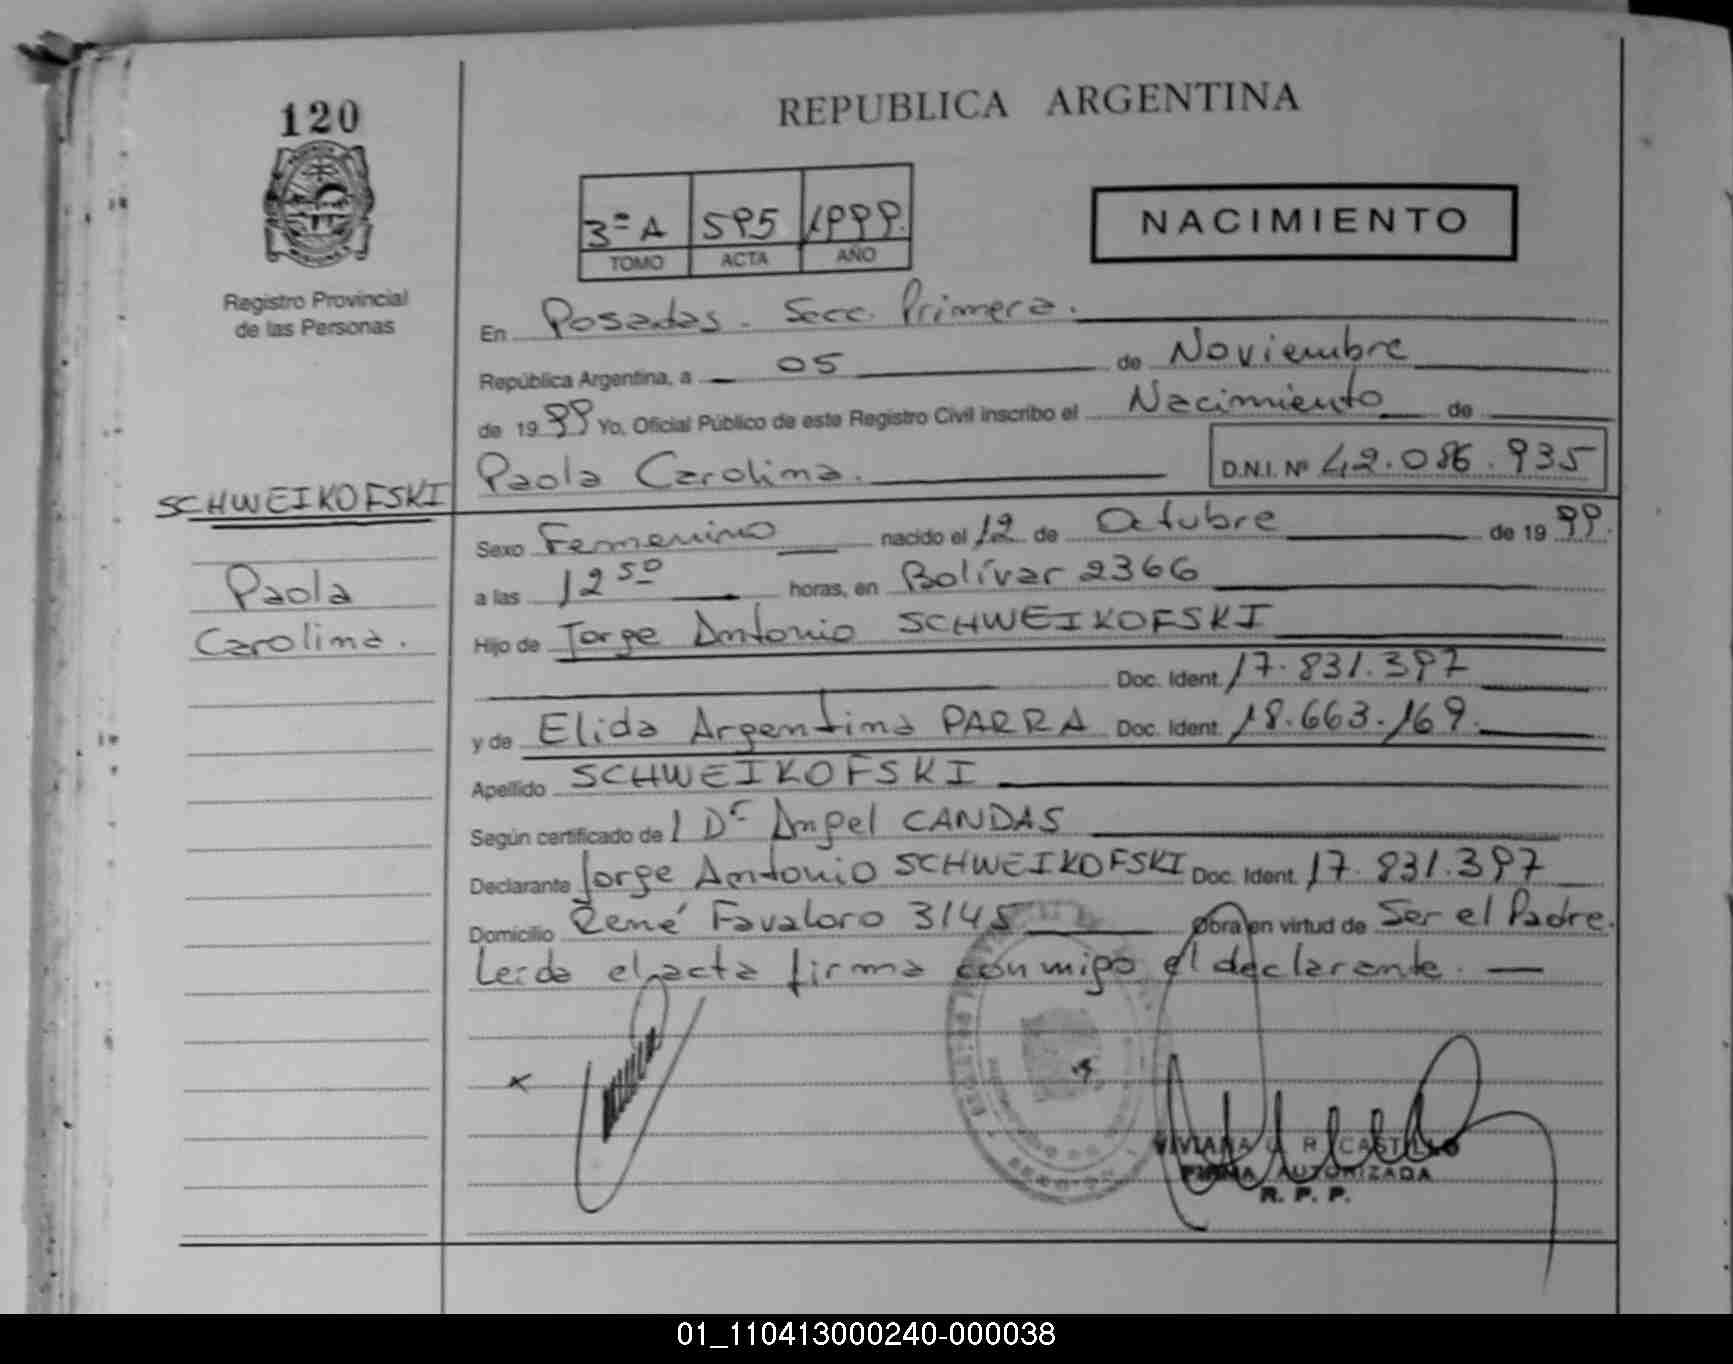 120
REPUBLICA ARGENTINA
3ª A 595 1999.
TOMO ACTA AÑO
NACIMIENTO
Registro Provincial
de las Personas
En Posadas - Secc. Primera.
República Argentina, a 05 de Noviembre
de 1999 Yo, Oficial Público de este Registro Civil inscribo el Nacimiento de
Paola Carolina. D.N.I. Nº 42.086.935
SCHWEIKOFSKI
Paola
Carolina.
Sexo Femenino nacido el 12 de Octubre de 1999.
a las 12 50 horas, en Bolívar 2366
Hijo de Jorge Antonio SCHWEIKOFSKI
Doc. Ident. 17.831.397
y de Elida Argentina PARRA Doc. Ident. 18.663.169.
Apellido SCHWEIKOFSKI
Según certificado de l Dr Angel CANDAS
Declarante Jorge Antonio SCHWEIKOFSKI Doc. Ident. 17.831.397
Domicilio René Favaloro 3145 Obra en virtud de Ser el Padre.
Leída el acta firma conmigo el declarante.
x
VIVIANA R. CASTILLO
FIRMA AUTORIZADA
R. P. P.
01_110413000240-000038